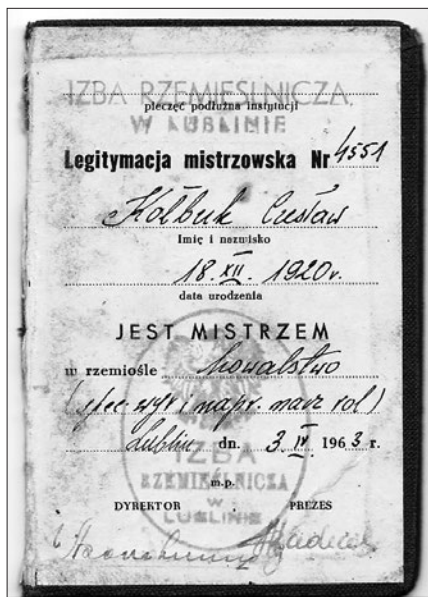 IZBA RZEMIEŚLNICZA
pieczęć podłużna instytucji
W LUBLINIE
Legitymacja mistrzowska Nr 4551
Kołbuk Czesław
Imię i nazwisko
18. XII. 1920 r.
data urodzenia
JEST MISTRZEM
w rzemiośle kowalstwo
(spec. wyr. i napr. narz. rol.)
Lublin dn. 3. IV 1963 r.
IZBA
RZEMIEŚLNICZA
m.p.
W
DYREKTOR PREZES
LUBLINIE